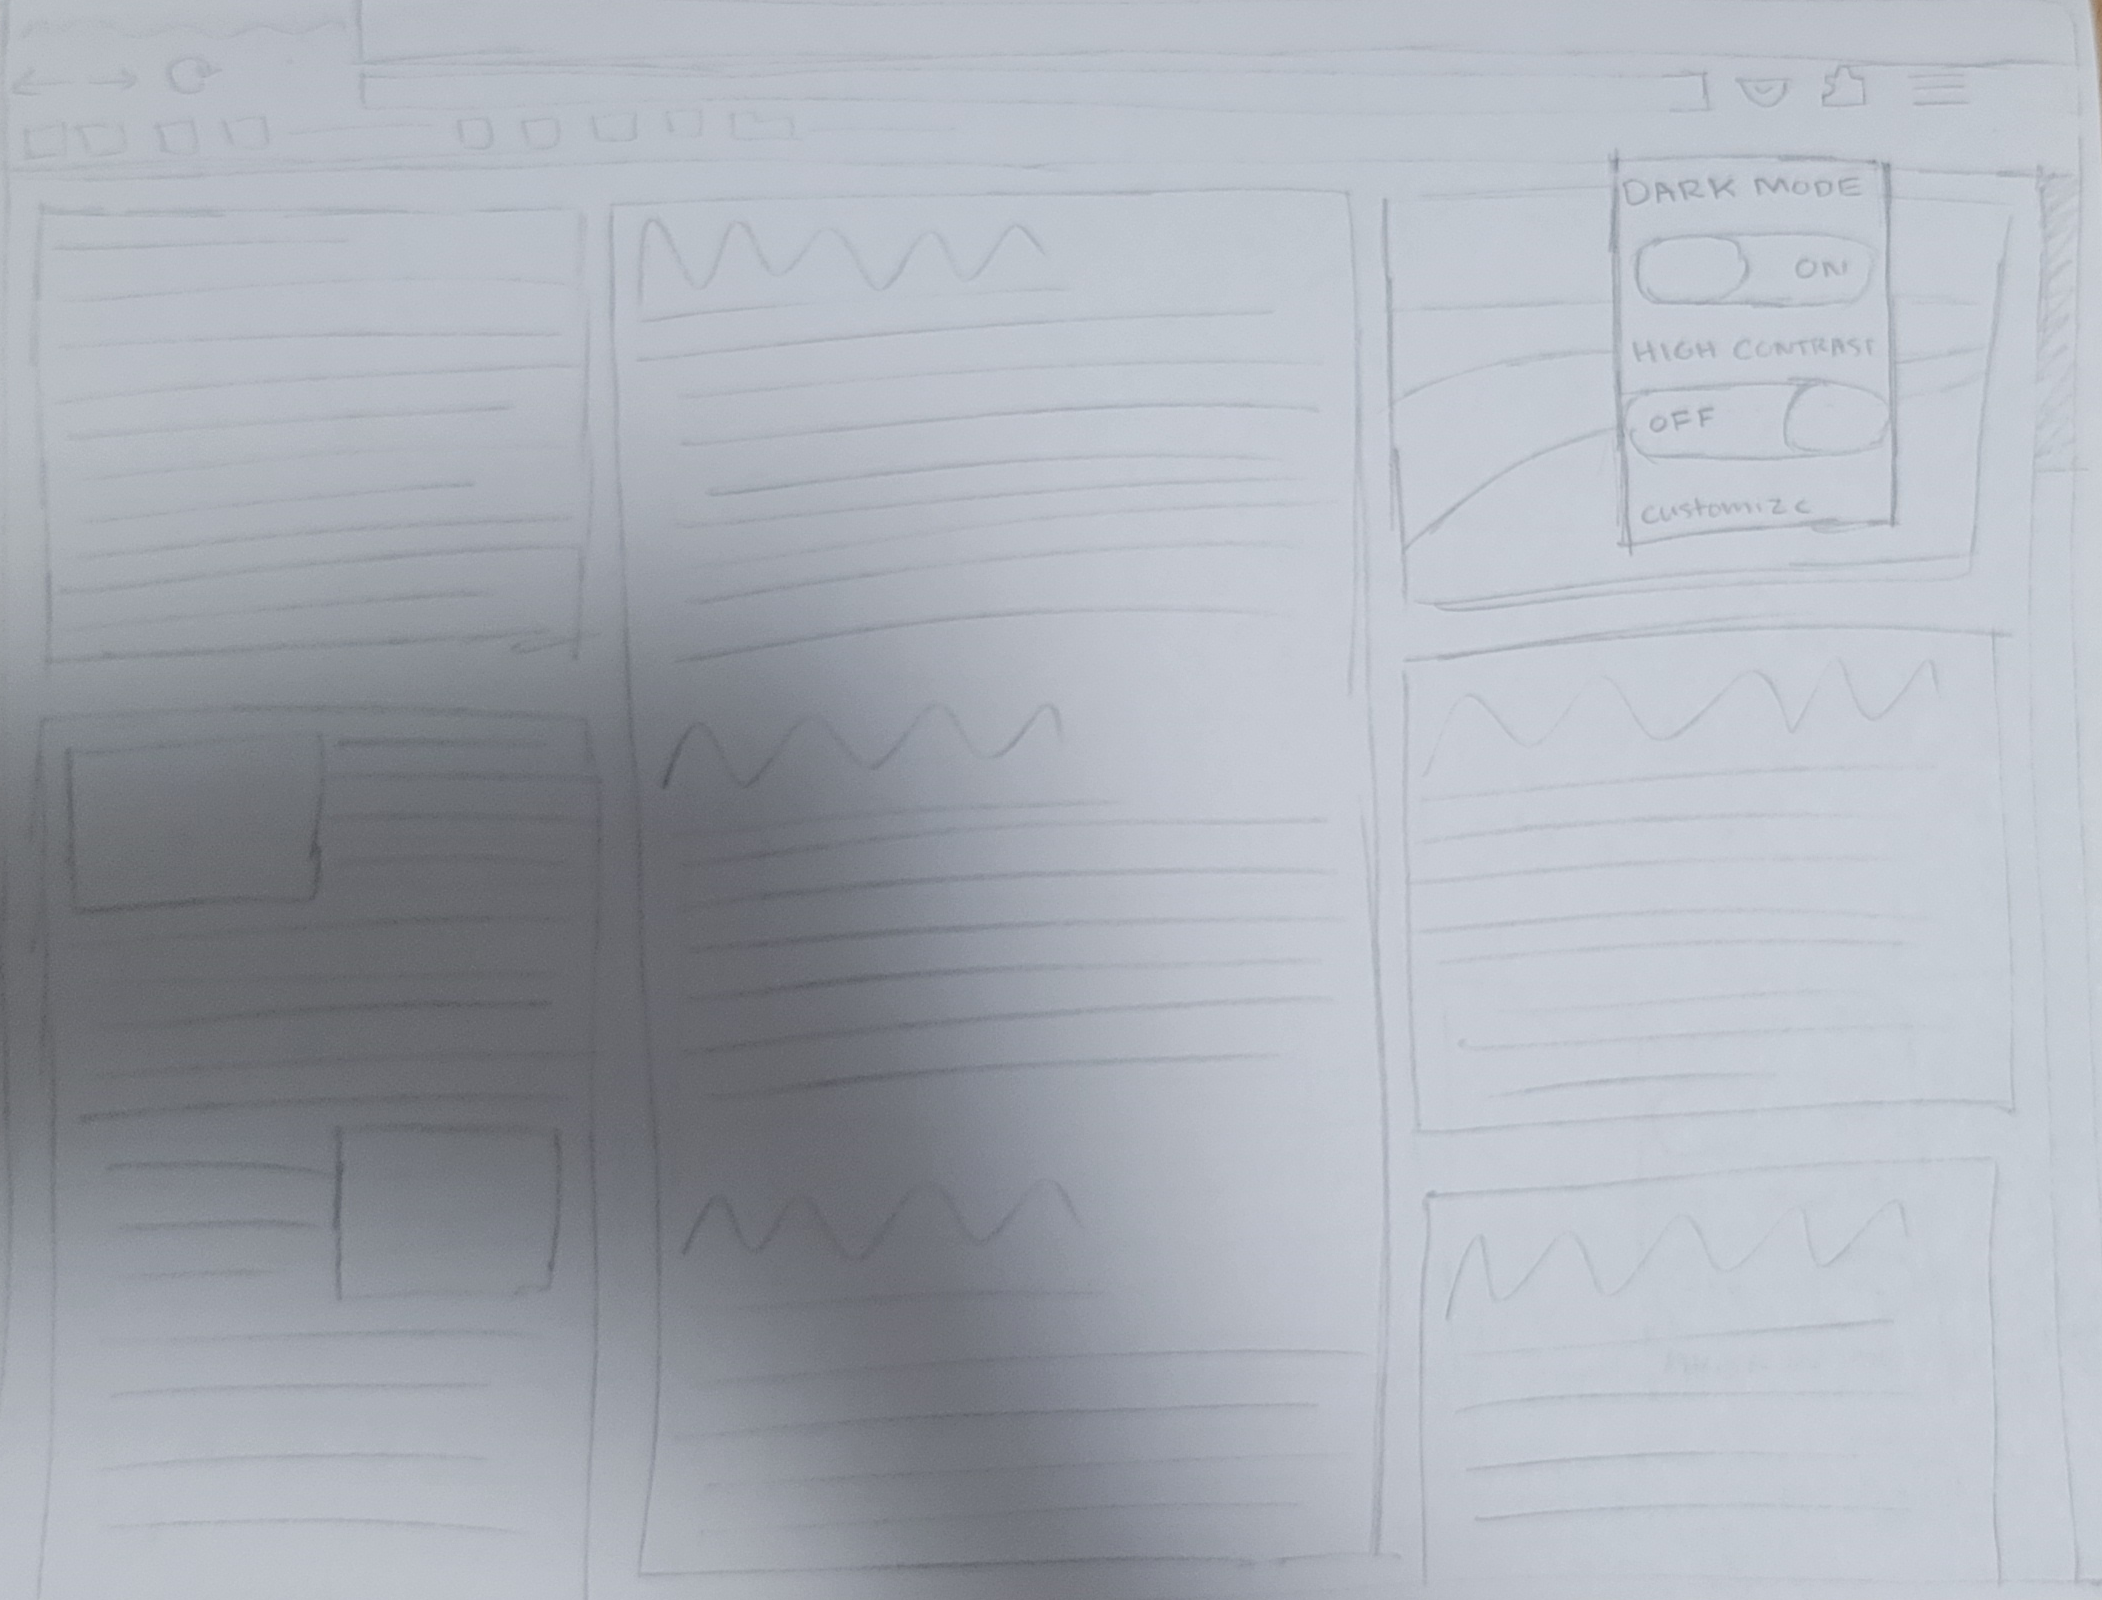 DARK MODE
ON
HIGH CONTRAST
OFF
customize